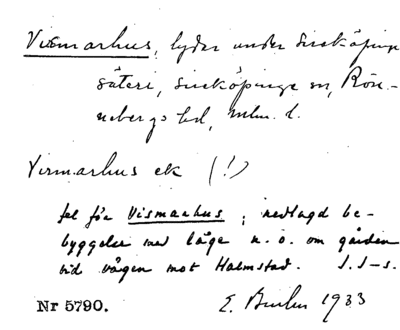 Vismarhus, lyder under Sireköpinge
säteri, Sireköpinge sn, Rön-
nebergs hd, Mlm. l.
Virmarhus ek (!)
fel för Vismarhus; nedlagd be-
byggelse med läge n. ö. om gården
vid vägen mot Halmstad. S.I-s.
Nr 5790.
E. 1933